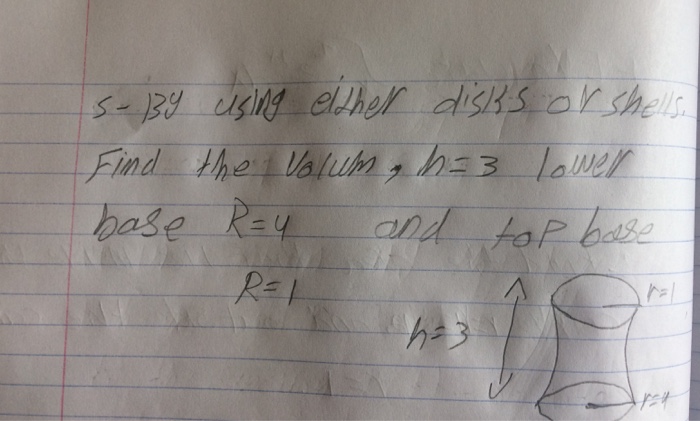 5- By using either disks or shells.
Find the Volum, h=3 lower
base R=4 and top base
R=1
r=1
h=3
r=4